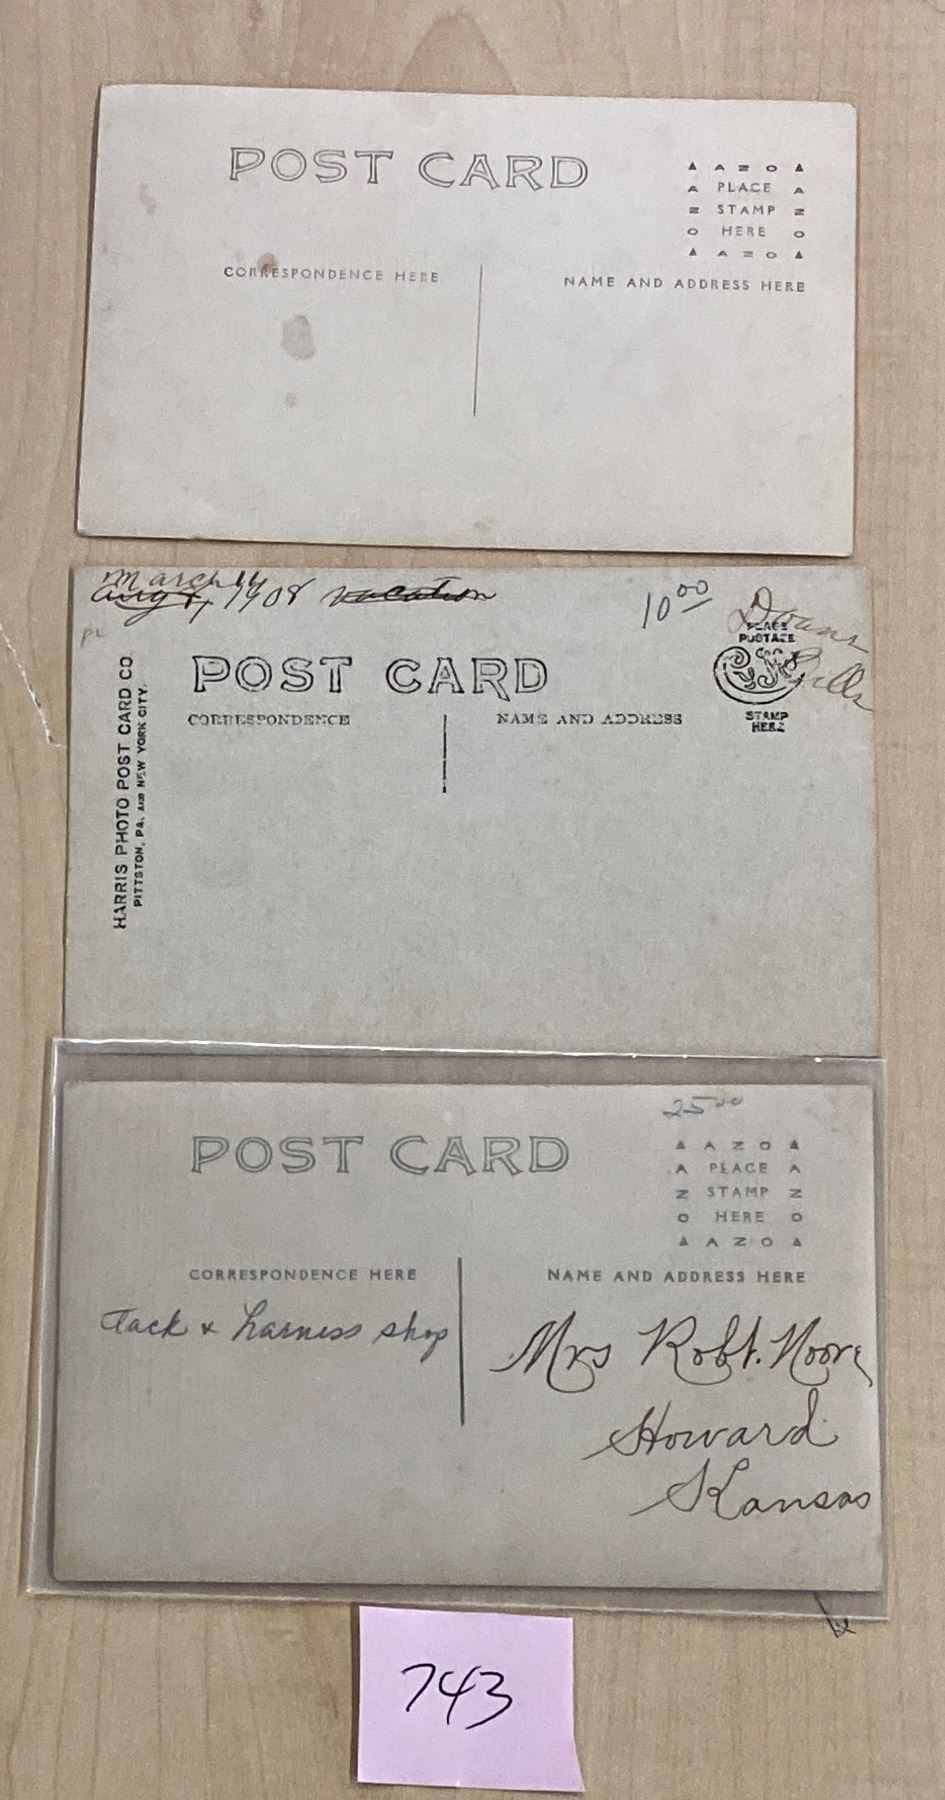 POST CARD
▲ A Z O ▲
A PLACE A
Z STAMP Z
O HERE O
▲ A Z O ▲
CORRESPONDENCE HERE
NAME AND ADDRESS HERE
March 14
Aug 8, 1908 vacation
10 00
PLACE
POSTAGE
CYKO
STAMP
HERE
POST CARD
CORRESPONDENCE
NAME AND ADDRESS
HARRIS PHOTO POST CARD CO.
PITTSTON, PA. AND NEW YORK CITY.
25 00
POST CARD
▲ A Z O ▲
A PLACE A
Z STAMP Z
O HERE O
▲ A Z O ▲
CORRESPONDENCE HERE
NAME AND ADDRESS HERE
Tack & harness shop
Mrs Robt. Moore
Howard
Kansas
743